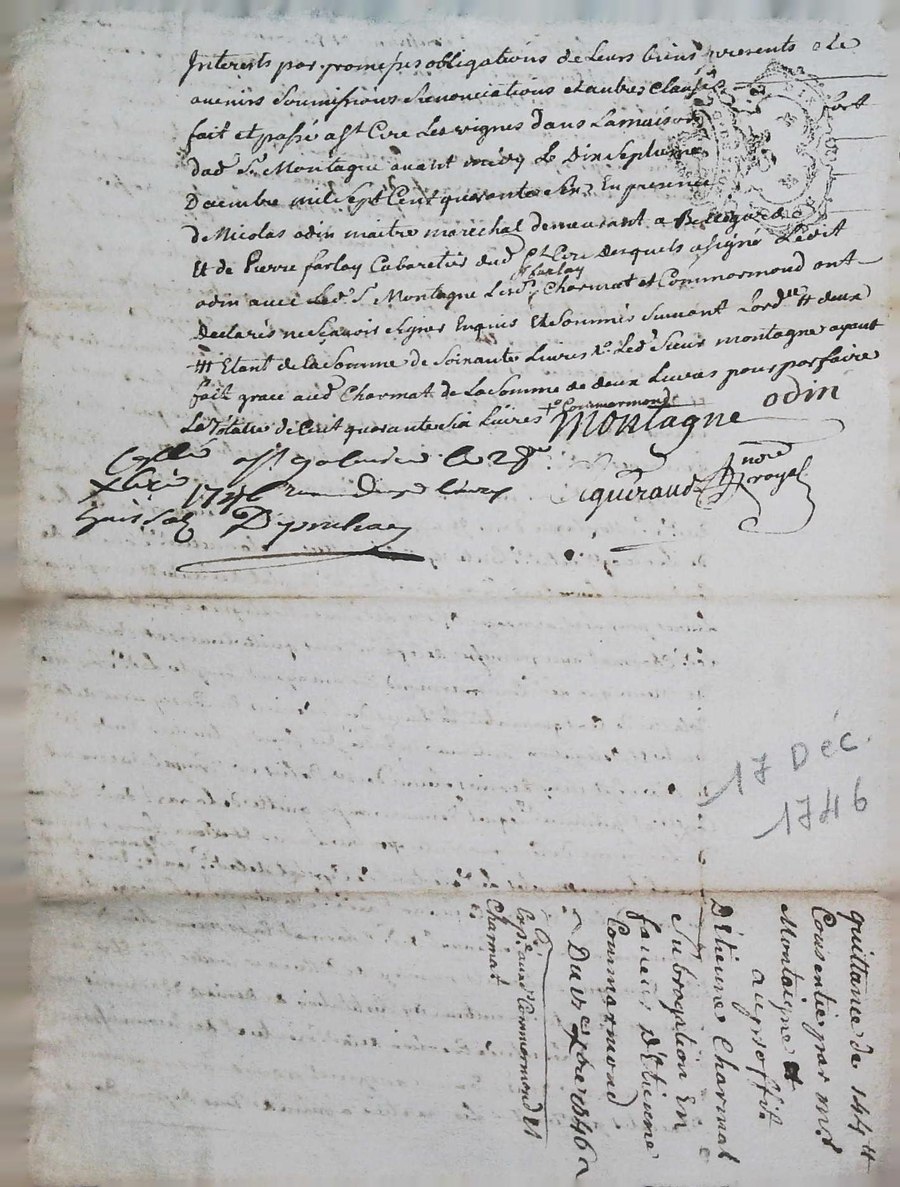 Interests par promesses obligations de Leurs biens presents
avenirs soumissions Renonciations et autres clauses
fait et passé a St Cire Les vignes dans La maison
dud Sr Montagne avant midy Le Dix Septieme
Decembre mil Sept Cent quarante En presence
de Nicolas odin maitre maréchal demeurant a
Et de Pierre farlay Cabaretier dud St Cire Lesquels a signé Ledit
odin avec Led Sr Montagne Les farlay Charmat et Commarmond ont
Declarés ne sçavoir signer Enquis Et Sommés suivant Lord deux
Etant de La Somme de Soixante Livres Led Sieur montagne ayant
fait grace aud Charmat de La Somme de deux Livres pour parfaire
Le Totale de Cent quarante Six Livres Commarmond
Montagne odin
le 28
1746
nore royal
17 DÉC.
1746
quittance de 144  tt
Consentie par mr
Montaigne et
D'Etienne Charmat
Subrogation En
faveur d'Etienne
Commarmond
Du
aud Commarmond Et
Charmat